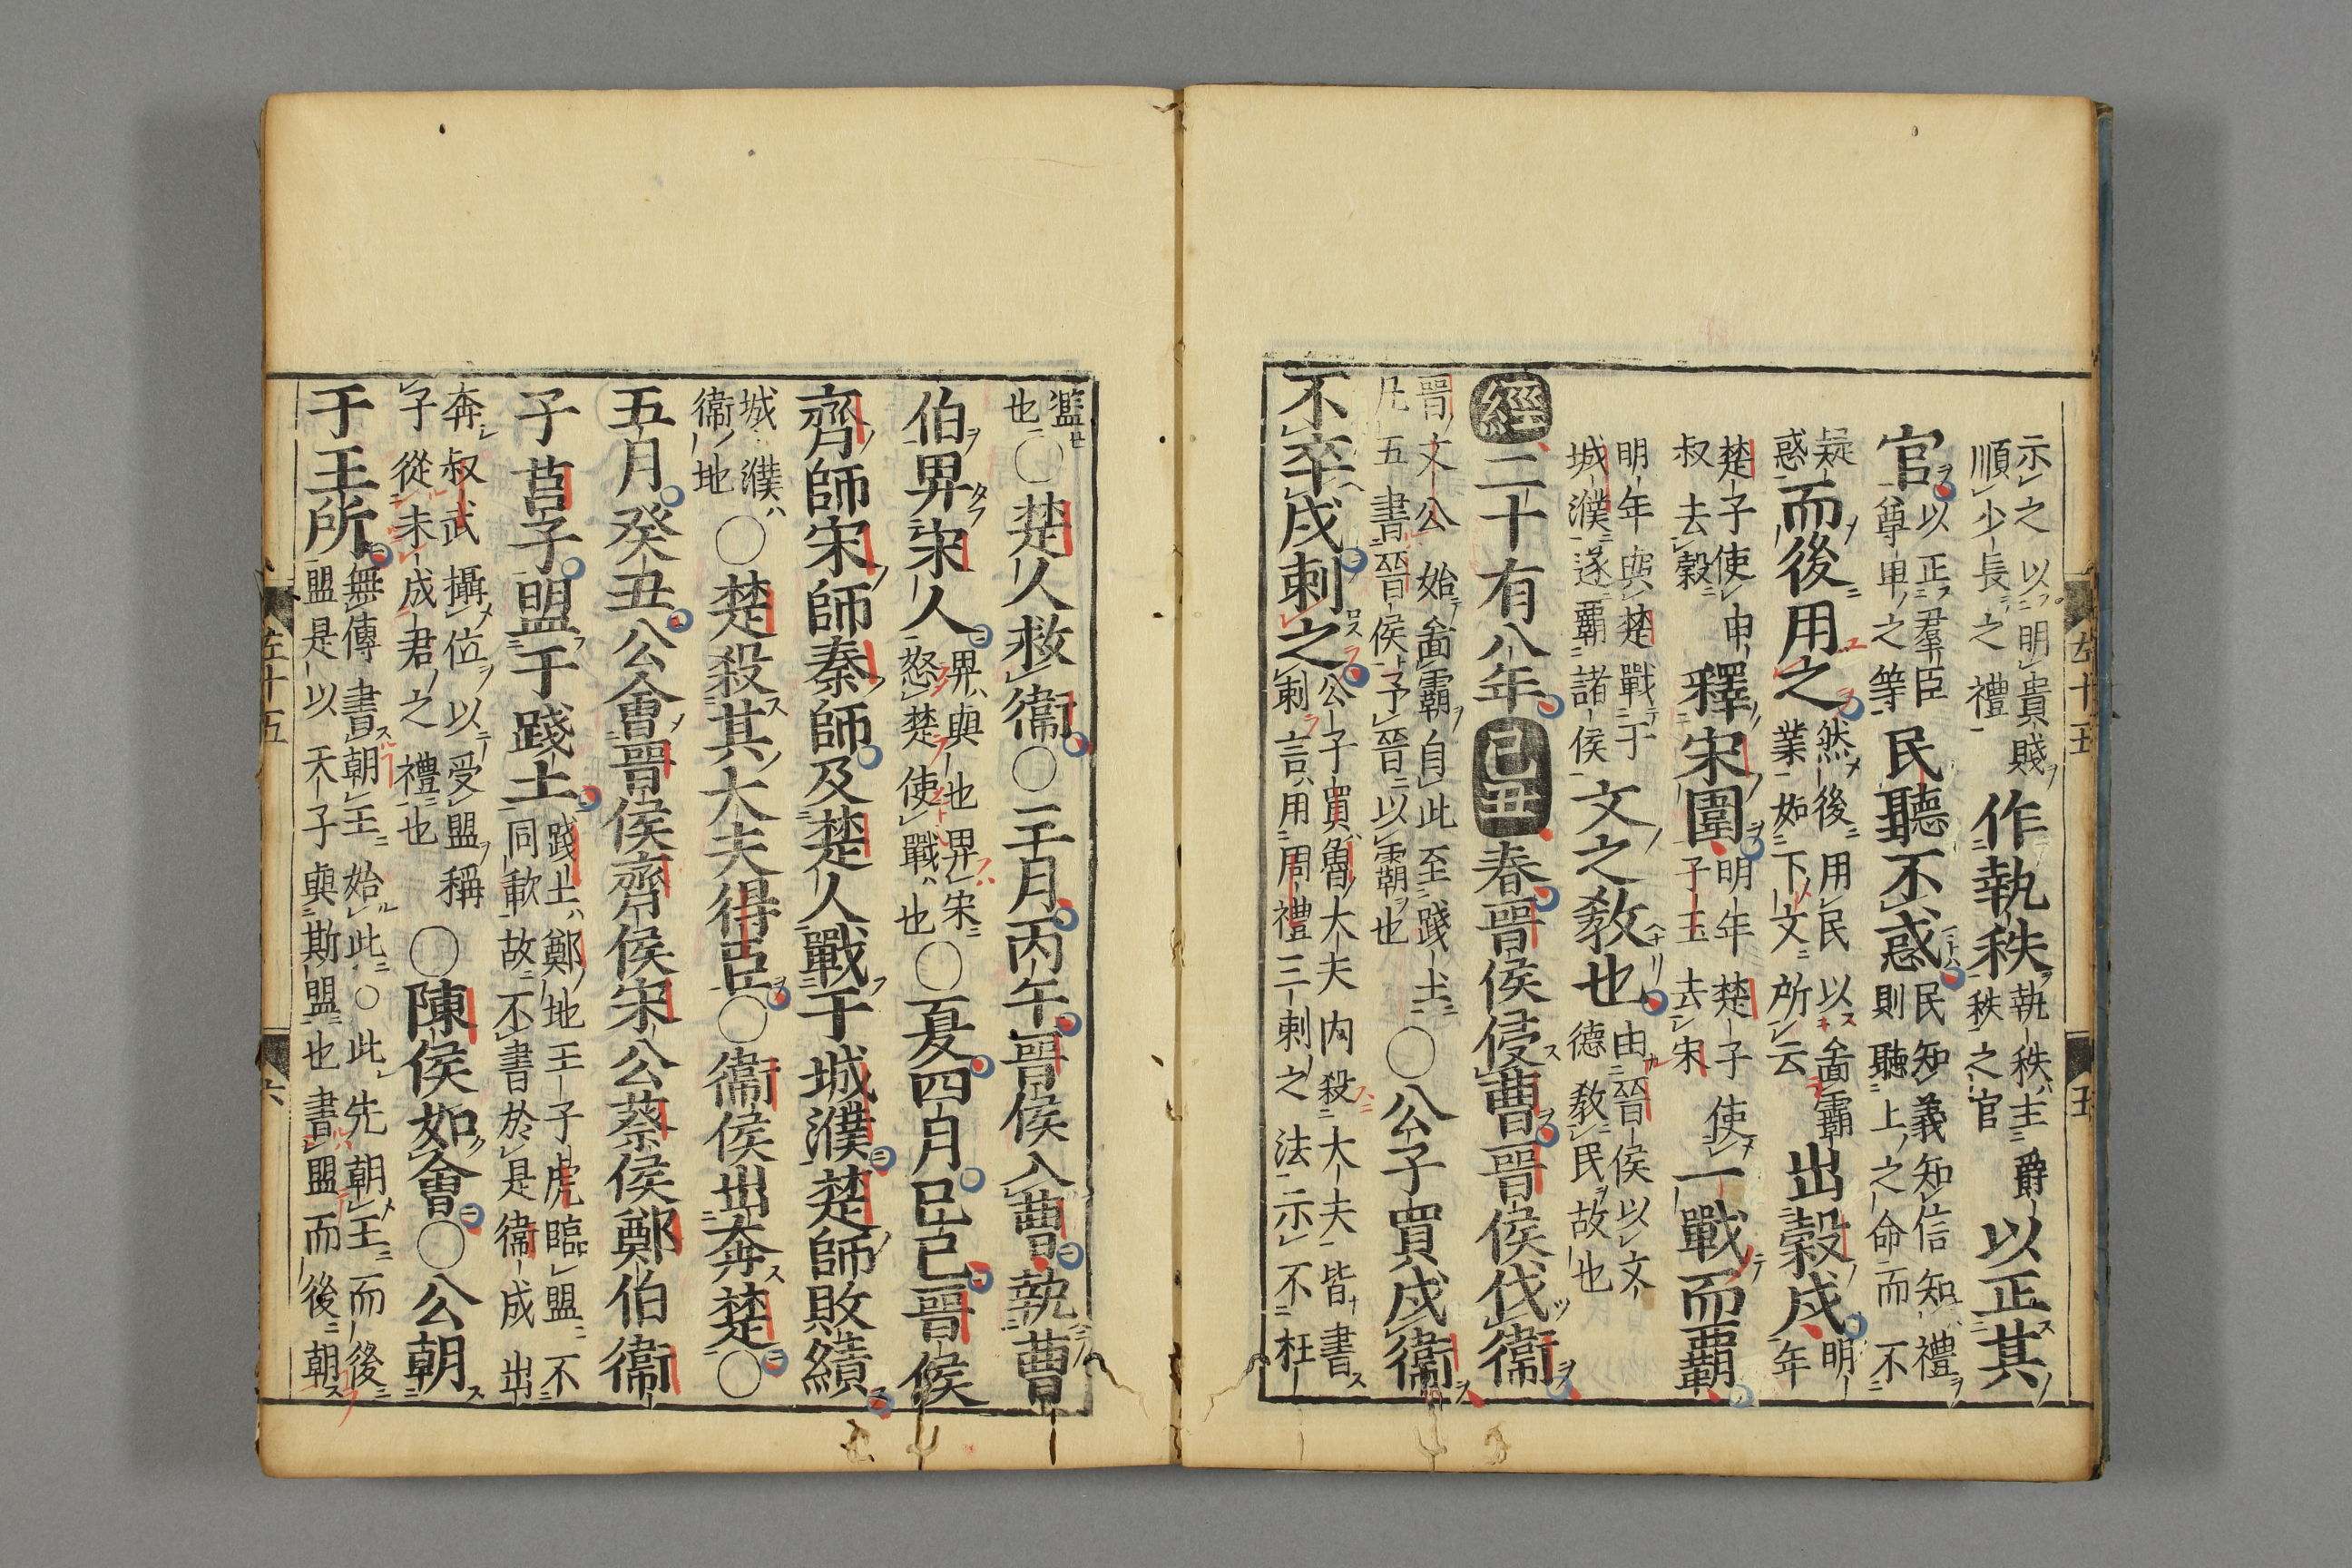 示之以明貴賤
順少長之禮
作執秩
執秩主爵
秩之官
以正其
官
以正羣臣
尊卑之等
民聽不惑
民知義知信知禮
則聽上之命而不
疑
惑
而後用之
然後用民以啚霸
業如下文所云
出榖戍
明
年
楚子使申
叔去穀
釋宋圍
明年楚子使
子玉去宋
一戰而覇
明年與楚戰于
城濮遂覇諸侯
文之敎也
由晉侯以文
德敎民故也
經二十有八年己丑春晉侯侵曹晉侯伐衞
晉文公始啚霸自此至踐土
凡五書晉侯予晉以霸也
○公子買戍衞
不卒戍刺之
公子買魯大夫内殺大夫皆書
刺言用周禮三刺之法示不枉
左十五
五
濫
也
○楚人救衞○三月丙午晉侯入曹執曹
伯畀宋人
畀與也畀宋
怒楚使戰也
○夏四月己巳晉侯
齊師宋師秦師及楚人戰于城濮楚師敗績
城濮
衞地
○楚殺其大夫得臣○衞侯出奔楚○
五月癸丑公會晉侯齊侯宋公蔡侯鄭伯衞
子莒子盟于踐土
踐土鄭地王子虎臨盟不
同歃故不書於是衞成出
奔叔武攝位以受盟稱
子從未成君之禮也
○陳侯如會○公朝
于王所
無傳書朝王始此○此先朝王而後
盟是以天子與斯盟也書盟而後朝
左十五
六